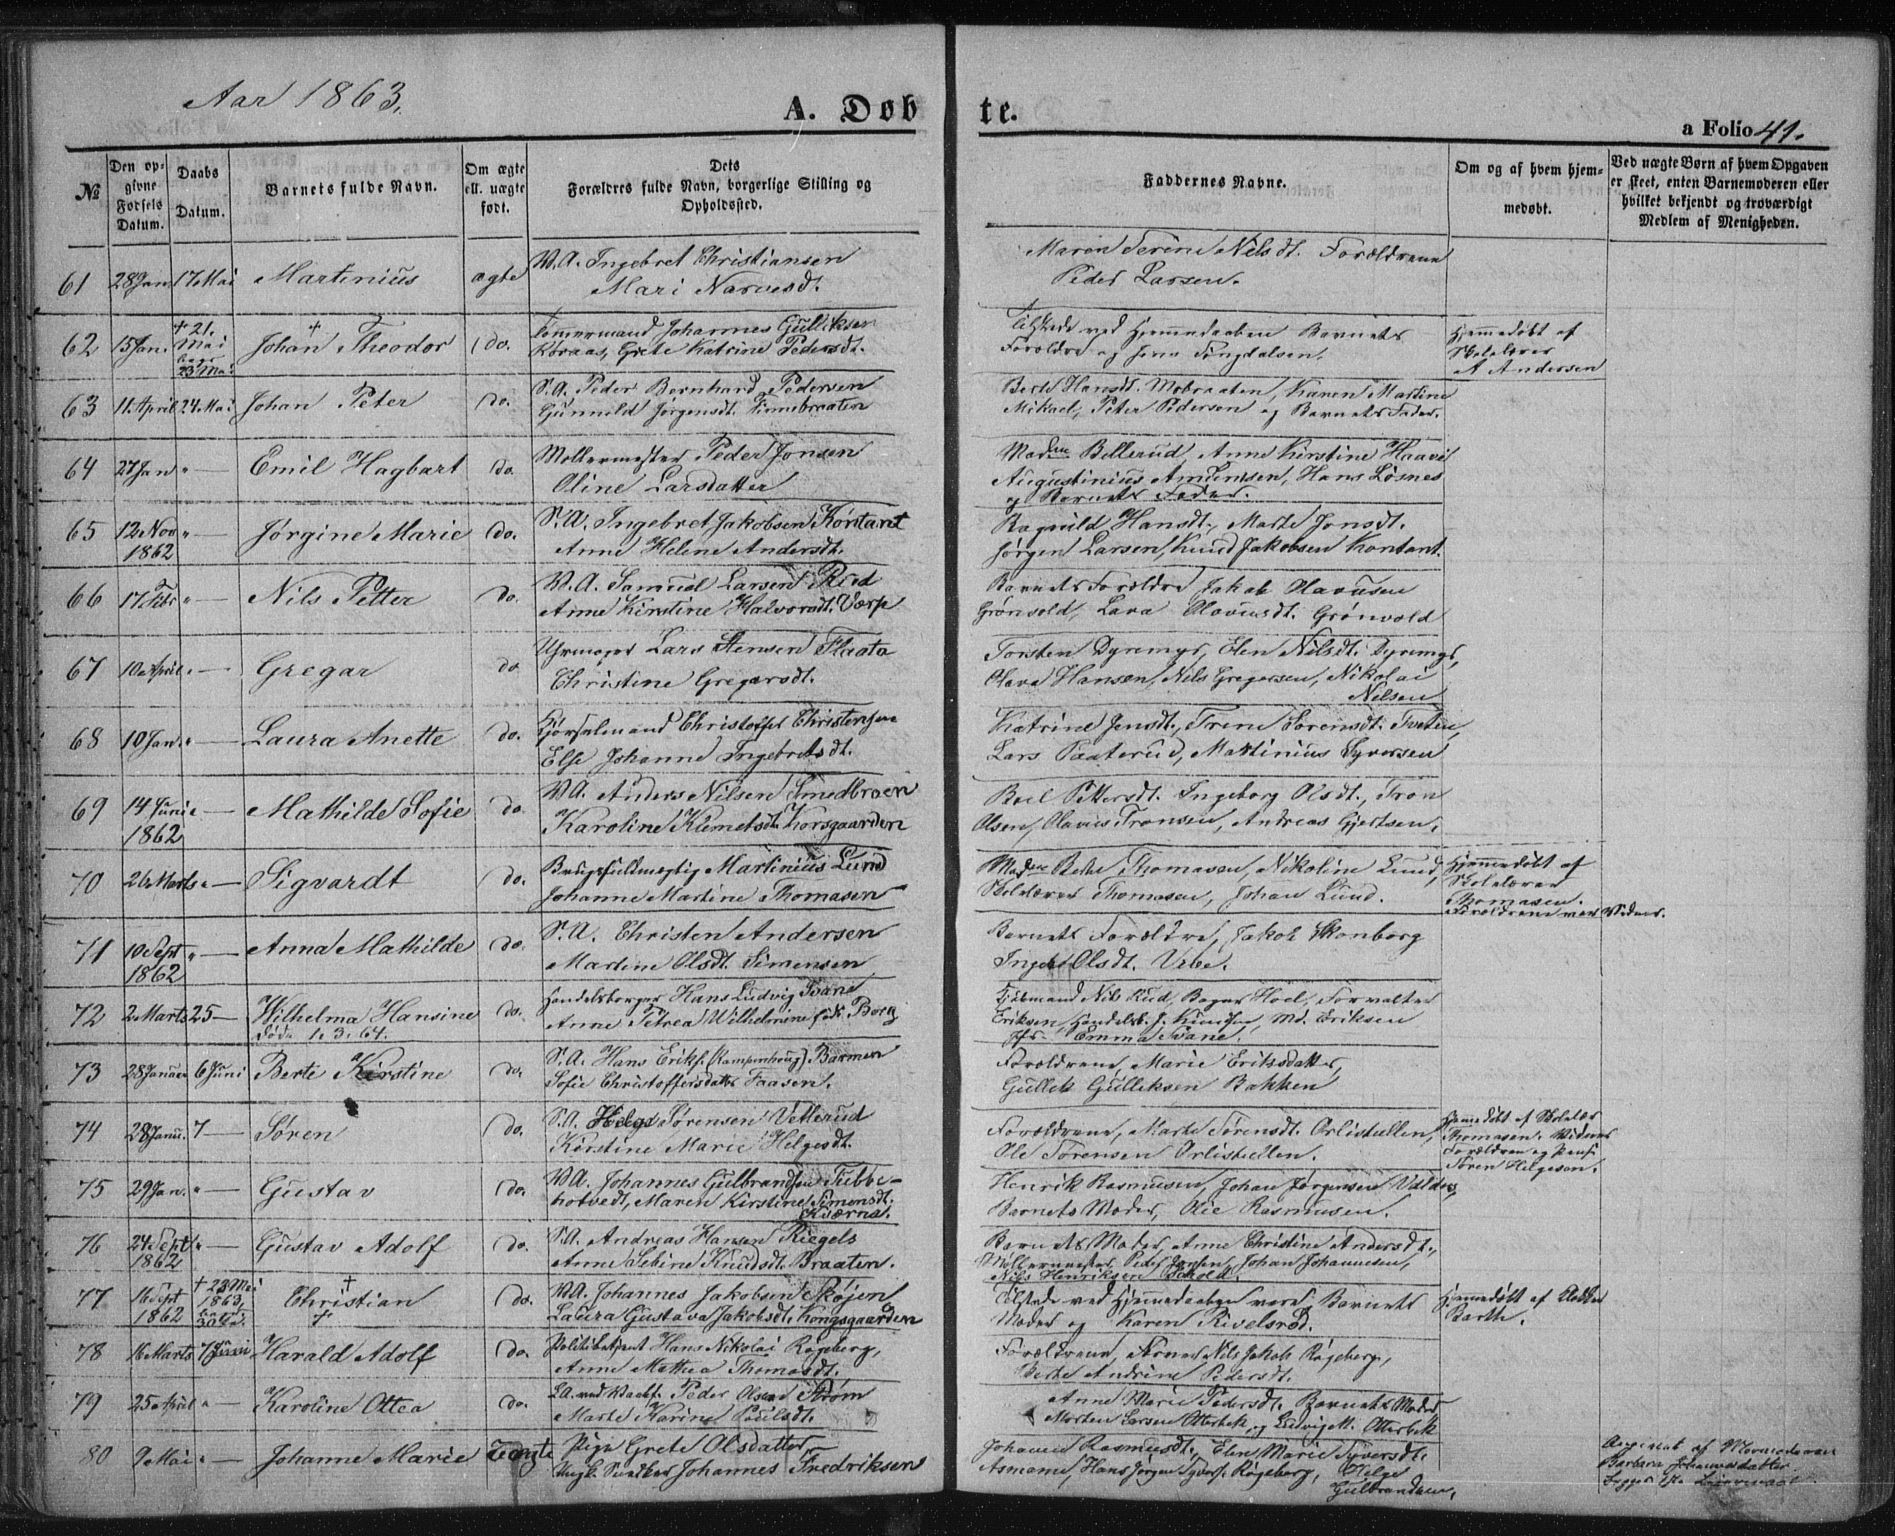 Aar 1863.
A. Døbte.
a Folio 41.
№
Den opgivne Fødsels Datum.
Daabs Datum.
Barnets fulde Navn.
Om ægte ell. uægte født.
Dets Forældres fulde Navn, borgerlige Stilling og Opholdssted.
Faddernes Navne.
Om og af hvem hjemmedøbt.
Ved uægte Børn af hvem Opgaven er skeet, enten Barnemoderen eller hvilket bekjendt og troværdigt Medlem af Menigheden.
61 28 Jan 17 Mai Martinius ægte
W.A. Ingebret Christiansen
Mari Narvesdt.
Maren Serine Nilsdt. Forældrene
Peder Larsen.
62 15 Jan. + 21. Mai 23 Mai Johan Theodor do.
Tømmermand Johannes Gulliksen
Grete Katrine Pedersdt.
Tilstede ved Hjemmedaaben Barnets
Forældre og Jens Tingdalsen.
Hjemmedøbt af
Skolelærer
A Andersen
63 11 April 24 Mai Johan Peter do.
S.A. Peder Bernhard Pedersen
Gunnild Jørgensdt. Finnebraaten
Berte Hansdt. Mobraaten, Karen Martine
Mikael, Peter Pedersen og Barnets Fader.
64 27 Jan " — Emil Hagbart do.
Møllermester Peder Jonsen
Oline Larsdatter
Madm Bellerud, Anne Kirstine Haavi
Augustinius Amundsen, Hans Løsnes
og Barnets Fader.
65 12 Nov 1862 " — Jørgine Marie do.
S.A. Ingebret Jakobsen Kontant
Anne Helene Andersdt.
Ragnild Hansdt., Marte Jonsdt.
Jørgen Larsen, Knud Jakobsen Kontant.
66 17 Febr " — Nils Petter do.
W.A. Samuel Larsen Rud
Anne Kirstine Halvorsdt. Værp
Barnets Forældre Jakob Olavesen
Grønvold, Lava Olavesdt. Grønvold
67 10 April " — Gregar do
Uhrmager Lars Stensen Flaata
Christine Gregarsdt.
Torsten Dyrmyr, Elen Nilsdt. Dyrmyr,
Olava Hansen, Nils Gregersen, Nikolai
Nelsen
68 10 Jan. " — Laura Anette do.
Kjørselmand Christoffer Christensen
Else Johanne Ingebretsdt.
Katrine Jensdt., Trine Sørensdt. Tveten,
Lars Paaterud, Martinius Syversen
69 14 Juni 1862 " — Mathilde Sofie do.
W.A. Anders Nilsen Smedbroen
Karoline Klemetsdt. Korsgaarden
Boel Pettersdt. Ingeborg Olsdt., Tron
Olsen, Olaves Tronsen, Andreas Gjertsen.
70 26 Marts " — Sigvardt do.
Brugsfuldmegtig Martinius Lund
Johanne Martine Thomasen
Madm Berthe Thomasen, Nikoline Lund,
Skolelærer Thomasen, Johan Lund.
Hjemmedøbt af
Skolelærer
Thomasen.
Forældrene var Vidner.
71 10 Sept 1862 " — Anna Mathilde do.
S.A. Christen Andersen
Martine Olsdt. Simensen
Barnets Forældre, Jakob Skonborg
Ingeb. Olsdt. Vebe.
72 2 Marts 25 — Wilhelma Hansine do.
døde 1. 3. 64.
Handelsborger Hans Ludvig Svane
Anne Petrea Wilhelmine født Borg
Nils Rud, Bager Hoel, Forvalter
Eriksen, Handelsb. J. Knudsen, Md. Eriksen
Jfr. Emma Svane.
73 28 Januar 6 Juni Berte Kirstine do.
S.A. Hans Eriks. (Kampenhaug) Barmen
Sofie Christoffersdatter Faasen.
Forældrene, Marie Eriksdatter,
Gullik Gulliksen Bakken
74 28 Janu. 7 — Søren do.
S.A. Helge Sørensen Vetterud
Kirstine Marie Helgesdt.
Forældrene, Marte Sørensdt. Orlistullen,
Ole Sørensen Orlistullen.
Hjemmedøbt af Skolelær
Thomasen. Vidner
Forældren og
Søren Helgesen.
75 29 Jan. " — Gustav do.
W.A. Johannes Gulbrandsen Tubbe-
hotvedt, Maren Kirstine Simensdt.
Kværna.
Henrik Rasmusen, Johan Jørgensen Valders,
Barnets Moder, Olie Rasmusen.
76 24 Sept 1862 " — Gustav Adolf do.
S.A. Andreas Hansen Riegels
Anne Sebine Knudsdt. Braaten.
Barnets Moder, Anne Christine Andersdt.,
Møllermester Peder Jonsen, Johan Johannesen,
Nils Henriksen
77 16 Sept 1862 + 23 Mai 1863, Christian do.
W.A. Johannes Jakobsen Røjen
Laura Gustava Jakobsdt. Kongsgaarden
Tilstede ved Hjemmedaaben vare Barnets
Moder og Karen Rivelsrød.
Hjemmedøbt af Klokker
Barth.
78 16 Marts 7 Juni Harald Adolf do.
Politibetjent Hans Nikolai Røgeberg,
Anne Mathea Thomasdt.
Forældrene, Nils Jakob Røgeberg,
Berte Andrine Pedersdt.
79 25 April " Karoline Ottea do.
S.A. ved Vaabf. Peder Olsen Strøm
Marte Karine Poulsdt.
Anne Marie Pedersdt. Barnets Moder
Morten Larsen Otterbek, og Ludvig M. Otterbek
80 9 Mai " — Johanne Marie Uægte
Pige Grete Olsdatter
Ungk. Snedker Johannes Fredriksen
Johanne Rasmusdt., Elen Marie Syversdt.
Asmanu, Hans Jørgen Syvers. Røgeberg, Helge
Gulbrandsen.
Opgivet af
Barbara Johannesdatter